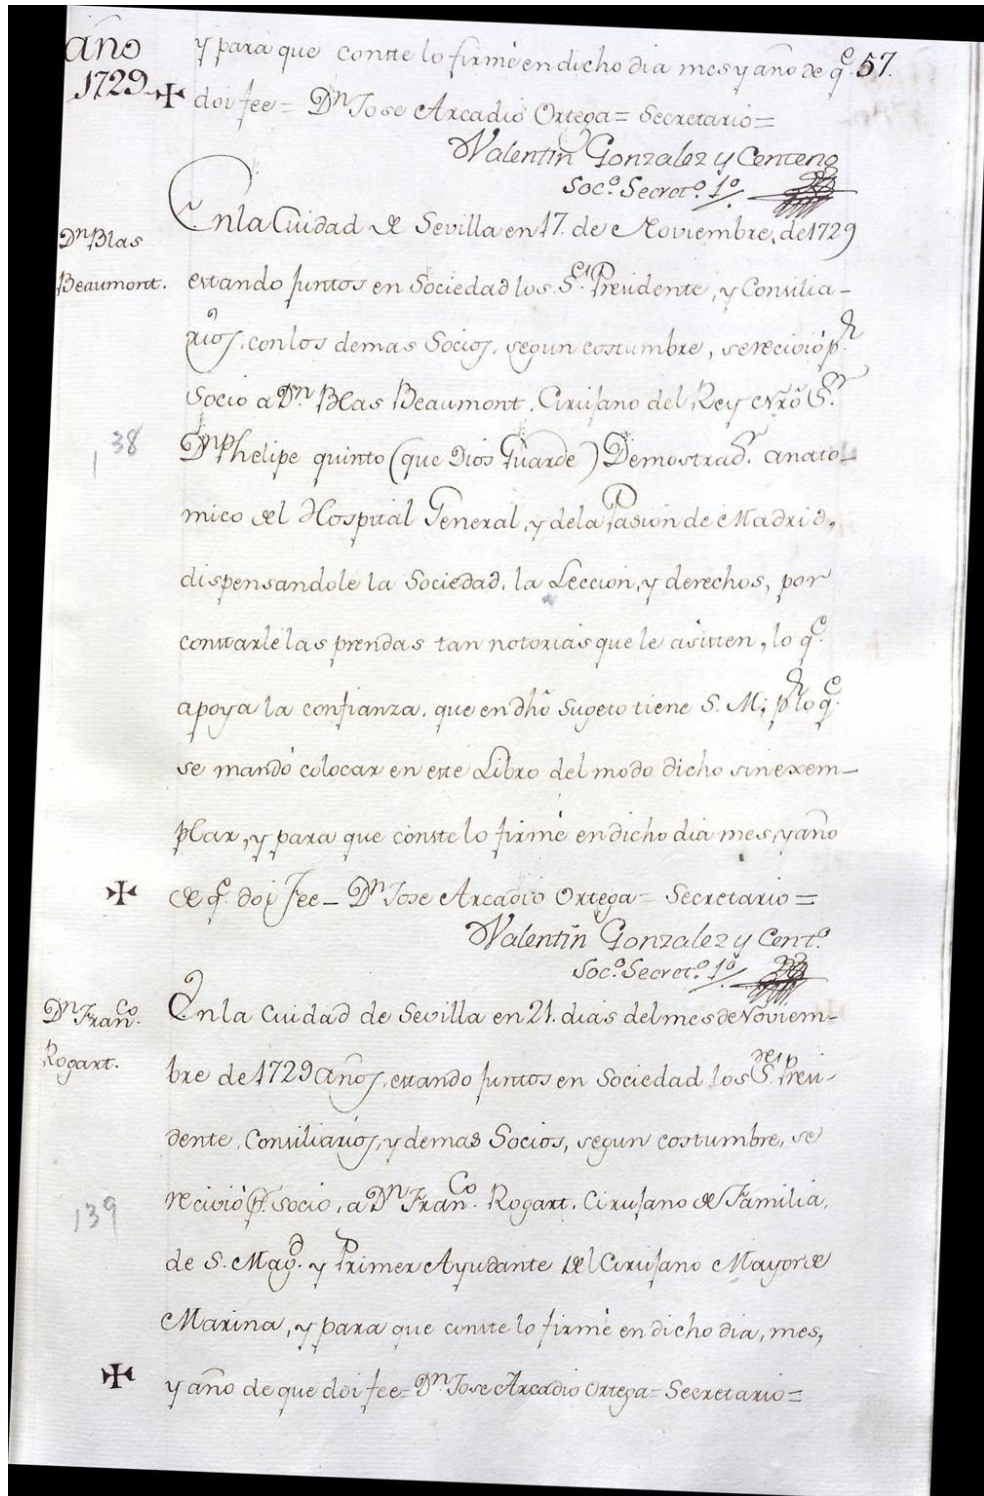 año
1729
y para que conste lo firmé en dicho dia mes y año de q.e 57.
doi fee = Dn Jose Arcadio Ortega = Secretario =
Valentin Gonzalez y Centeno
Soc.o Secret.o 1.o
Dn Blas
Beaumont.
En la Ciudad de Sevilla en 17. de Noviembre, de 1729
estando juntos en Sociedad los S.es Presidente, y Consilia-
rios, con los demas Socios, segun costumbre, se recivió p.r
Socio a Dn. Blas Beaumont, Cirujano del Rey Nrõ S.r
138
Dn Phelipe quinto (que Dios Guarde) Demostrad.r anato-
mico del Hospital General, y de la Pasion de Madrid,
dispensandole la Sociedad, la Leccion, y derechos, por
constarle las prendas tan notorias que le asisten, lo q.e
apoya la confianza, que en dhõ Sugeto tiene S. M; p.r lo q.e
se mandó colocar en este Libro del modo dicho sin exem-
plar, y para que conste lo firmé en dicho dia mes, y año
de q.e doy fee - Dn Jose Arcadio Ortega = Secretario =
Valentin Gonzalez y Cent.o
Soc.o Secret.o 1.o
Dn Fran.co
Rogart.
En la Ciudad de Sevilla en 21. dias del mes de Noviem-
bre de 1729 años, estando juntos en Sociedad los S.res Presi-
dente, Consiliarios, y demas Socios, segun costumbre, se
recivió p.r Socio, a Dn Fran.co Rogart, Cirujano de Familia,
139
de S. Mag.d y Primer Ayudante del Cirujano Mayor de
Marina, y para que conste lo firmé en dicho dia, mes,
y año de que doi fee = Dn. Jose Arcadio Ortega = Secretario =